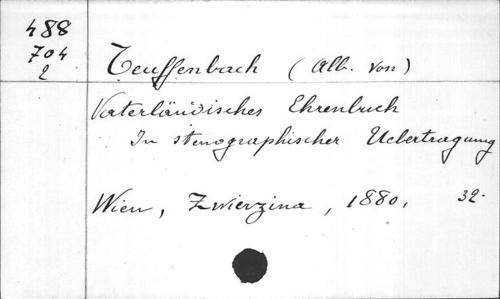 488
704
2
Teuffenbach (Alb. von)
Vaterländisches Ehrenbuch
In stenographischer Uebertragung
Wien, Zwierzina, 1880, 32-